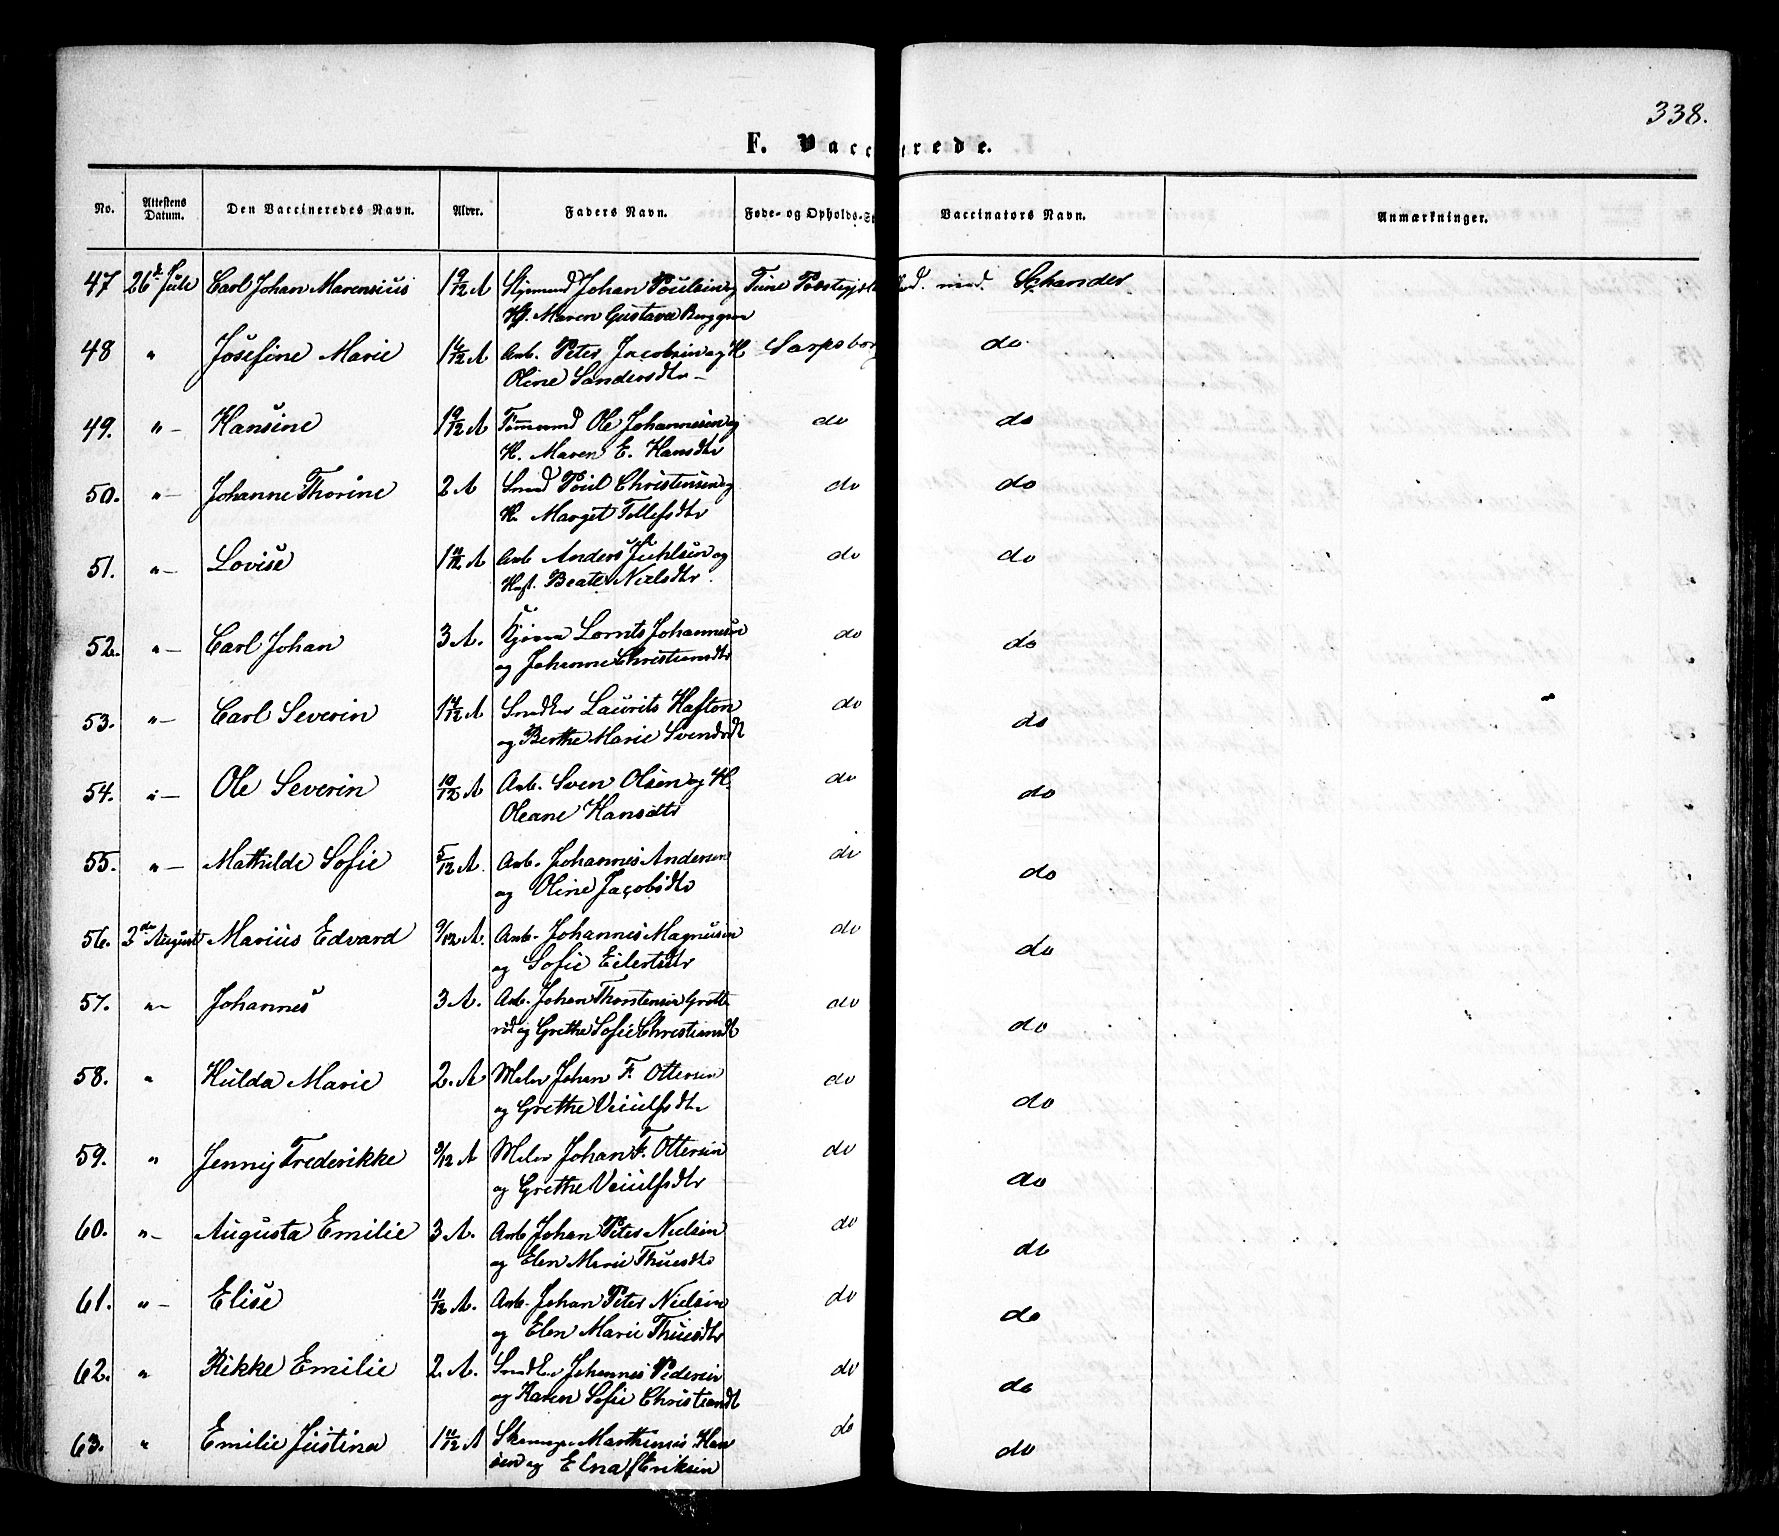 338.
F. Vaccinerede.
No. Attestens Datum. Den Vaccineredes Navn. Alder. Faders Navn. Føde- og Opholds-St Vaccinators Navn. Anmærkninger.
47 26de Juli Carl Johan Marensius 1 9/12 A Johan Poulsen og Tune Schander
Maren Gustava Berggren
48 " Josefine Marie Arb. Peter Jacobsen og H Sarpsborg do
Oline Sandersdtr
49. " Hansine 1 9/12 A Tømmermd Ole Johannesen og do do
H. Maren E. Hansdtr
50. " Johanne Thorine 2 A Smed Poul Christensen og do do
H. Marget Tellefsdtr
51. " Lovise 1 11/12 A Arb Anders og do do
Hust. Beate Nielsdtr.
52. " Carl Johan 3 A. Lornts Johannesen do do
og Johanne Christiansdtr
53. " Carl Severin Laurits Hafton do do
og Berthe Marie Svendsdt
54. " Ole Severin 10/12 A Arb. Sven Olsen og H. do do
Oleane Hansdtr
55. " Mathilde Sofie 5/12 A. Arb. Johannes Andersen do do
og Oline Jacobsdtr
56. 3de August Marius Edvard 9/12 A. Arb. Johannes Magnusen do do
og Sofie Eilertsdtr
57. " Johannes 3 A. Arb. Johan Thorstensen Grotte do do
rød og Grethe Sofie Christiansdt
58. " Hulda Marie 2. A Maler Johan F. Ottersen do do
og Grethe
59. " Jenny Frederikke 9/12 A Maler Johan F. Ottersen do do
og Grethe
60. " Augusta Emilie 3 A. Arb Johan Peter Nielsen do do
og Elen Marie Thuesdtr
61. " Elise 11/12 A. Arb. Johan Peter Nielsen do do
og Elen Marie Thuesdtr
62. " Rikke Emilie 2. A. Johannes Pedersen do do
og Karen Sofie Christiansdt
63. " Emilie Justina 1 11/12 A Marthinus Han do do
sen og Elna Eriksen